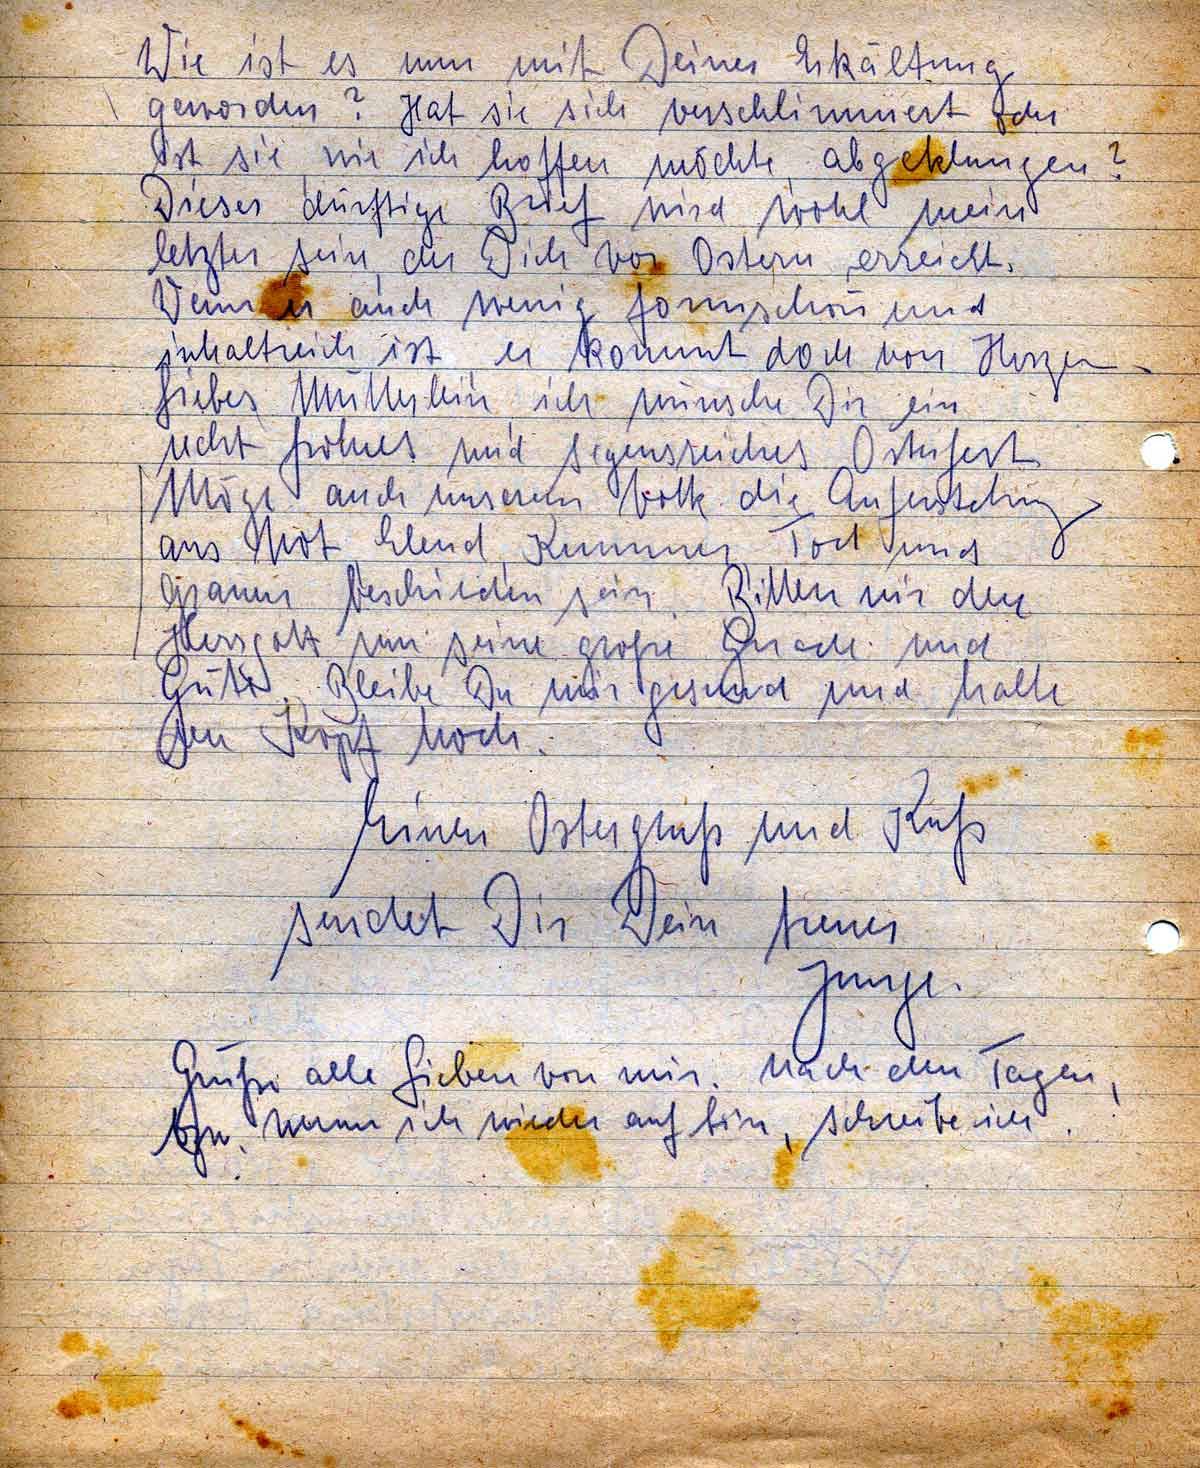 Wie ist es nun mit Deiner Erkältung
geworden? Hat sie sich verschlimmert oder
ist sie, wie ich hoffen möchte, abgeklungen?
Dieser dürftige Brief wird wohl mein
letzter sein, der Dich vor Ostern erreicht.
Wenn er auch wenig formschön und
inhaltreich ist, er kommt doch von Herzen.
Liebes Mütterlein ich wünsche Dir ein
recht frohes und segensreiches Osterfest
Möge auch unserem Volk die Auferstehung
aus Not Elend, Kummer, Tod und
Grauen beschieden sein. Bitten wir den
Herrgott um seine große Gnade und
Güte. Bleibe Du mir gesund und halte
den Kopf hoch.
Einen Ostergruß und Kuß
sendet Dir Dein treuer
Junge.
Grüße alle Lieben von mir. Nach den Tagen,
bzw. wenn ich wieder auf bin, schreibe ich.